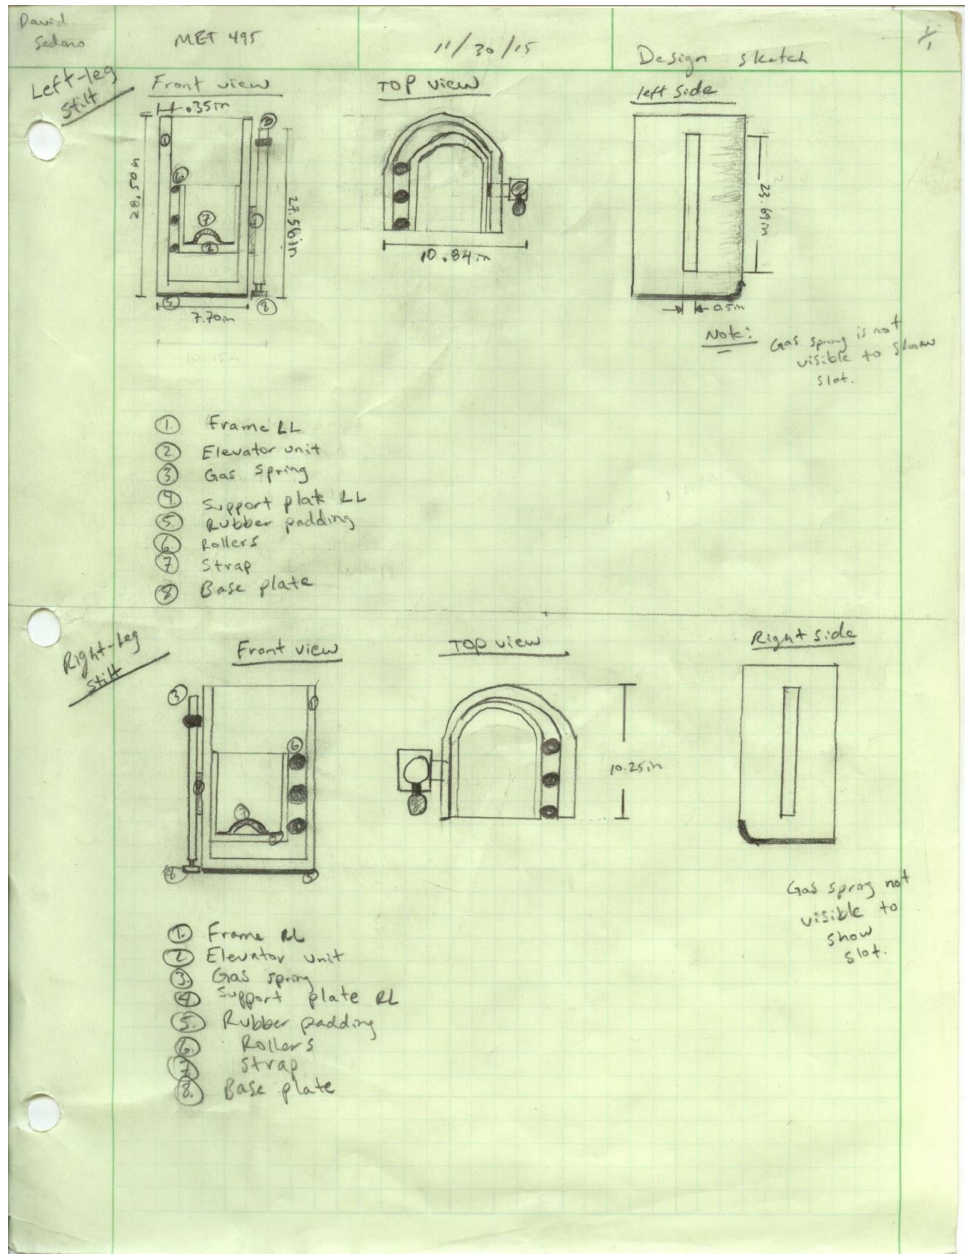 David
Sedano
MET 495
11/30/15
Design sketch
1/1
Left-leg
Stilt
Front view
TOP view
left side
.35in
28.50in
27.56in
10.84in
23.69in
7.70in
0.5in
10.45in
Note: Gas spring is not
visible to show
slot.
① Frame LL
② Elevator unit
③ Gas spring
④ Support plate LL
⑤ Rubber padding
⑥ Rollers
⑦ Strap
⑧ Base plate
Right-leg
Stilt
Front view
TOP view
Right side
10.25in
Gas sprng not
visible to
show
slot.
①. Frame RL
② Elevator unit
③. Gas spring
④ Support plate RL
⑤. Rubber padding
⑥. Rollers
⑦. Strap
⑧. Base plate